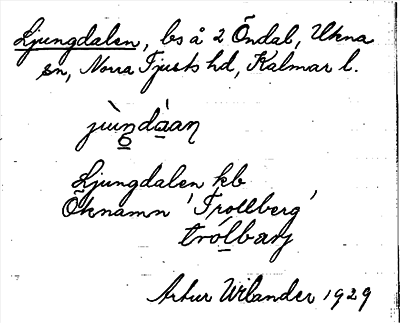 Ljungdalen, bs å 2 Öndal, Ukna
sn, Norra Tjusts hd, Kalmar l.
jùn̥dàan̥
Ljungdalen kb
Öknamn 'Trollberg'
trólbærj
Artur Wilander 1929